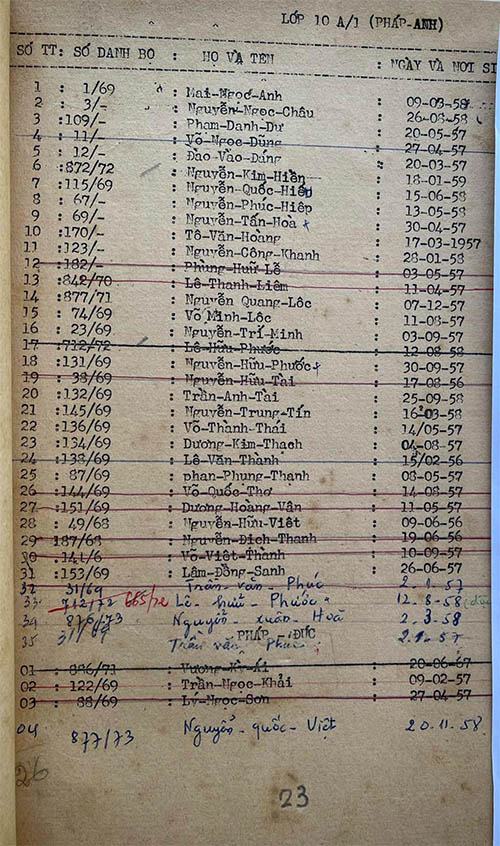 LỚP 10 A/1 (PHÁP-ANH)
SỐ TT: SỐ DANH BỘ : HỌ VÀ TÊN : NGÀY VÀ NƠI SI
1 : 1/69 : Mai-Ngọc-Anh : 09-03-58
2 : 3/- : Nguyễn-Ngọc-Châu : 26-08-58
3 :109/- : Phạm-Danh-Dự : 20-05-57
4 : 11/- : Võ-Ngọc-Dũng : 27-04-57
5 : 12/- : Đào-Vào-Dáng : 20-03-57
6 :872/72 : Nguyễn-Kim-Hiền : 18-01-59
7 :115/69 : Nguyễn-Quốc-Hiếu : 15-06-58
8 : 67/- : Nguyễn-Phúc-Hiệp : 13-05-58
9 : 69/- : Nguyễn-Tấn-Hoà : 30-04-57
10 :170/- : Tô-Văn-Hoàng : 17-03-1957
11 :123/- : Nguyễn-Công-Khanh : 28-01-58
12 :182/- : Phùng-Hưữ-Lễ : 03-05-57
13 :842/70 : Lê-Thanh-Liêm : 11-04-57
14 :877/71 : Nguyễn Quang-Lộc : 07-12-57
15 : 74/69 : Võ Minh-Lộc : 11-08-57
16 : 23/69 : Nguyễn-Trí-Minh : 03-09-57
17 :712/72 : Lê-Hữu-Phước : 12-08-58
18 :131/69 : Nguyễn-Hữu-Phước : 30-09-57
19 : 38/69 : Nguyễn-Hữu-Tài : 17-08-56
20 :132/69 : Trần-Anh-Tài : 25-09-58
21 :145/69 : Nguyễn-Trung-Tín : 16-03-58
22 :136/69 : Võ-Thành-Thái : 14/05-57
23 :134/69 : Dương-Kim-Thạch : 04-08-57
24 :138/69 : Lê-Văn-Thành : 15/02-56
25 : 87/69 : phan-Phụng-Thạnh : 08-05-57
26 :144/69 : Võ-Quốc-Thơ : 14-08-57
27 :151/69 : Dương-Hoàng-Vân : 11-05-57
28 : 49/68 : Nguyễn-Hữu-Việt : 09-06-56
29 187/68 : Nguyễn-Đích-Thanh : 19-06-56
30 : 141/6 : Võ-Việt-Thành : 10-09-57
31 :153/69 : Lâm-Đồng-Sanh : 26-06-57
32 31/69 Trần-văn-Phúc 2-1-57
33 712/72 665/72 Lê-hữu-Phước 12-8-58
34 876/73 Nguyễn-xuân-Hoà 2-3-58
PHÁP - ĐỨC
35 31/69 Trần văn Phúc 2-1-57
01 : 886/71 : Vương-Kỳ-Ái : 20-06-67
02 : 122/69 : Trần-Ngọc-Khải : 09-02-57
03 : 88/69 : Lý-Ngọc-Sơn : 27-04-57
04 877/73 Nguyễn-quốc-Việt 20-11-58
26
23